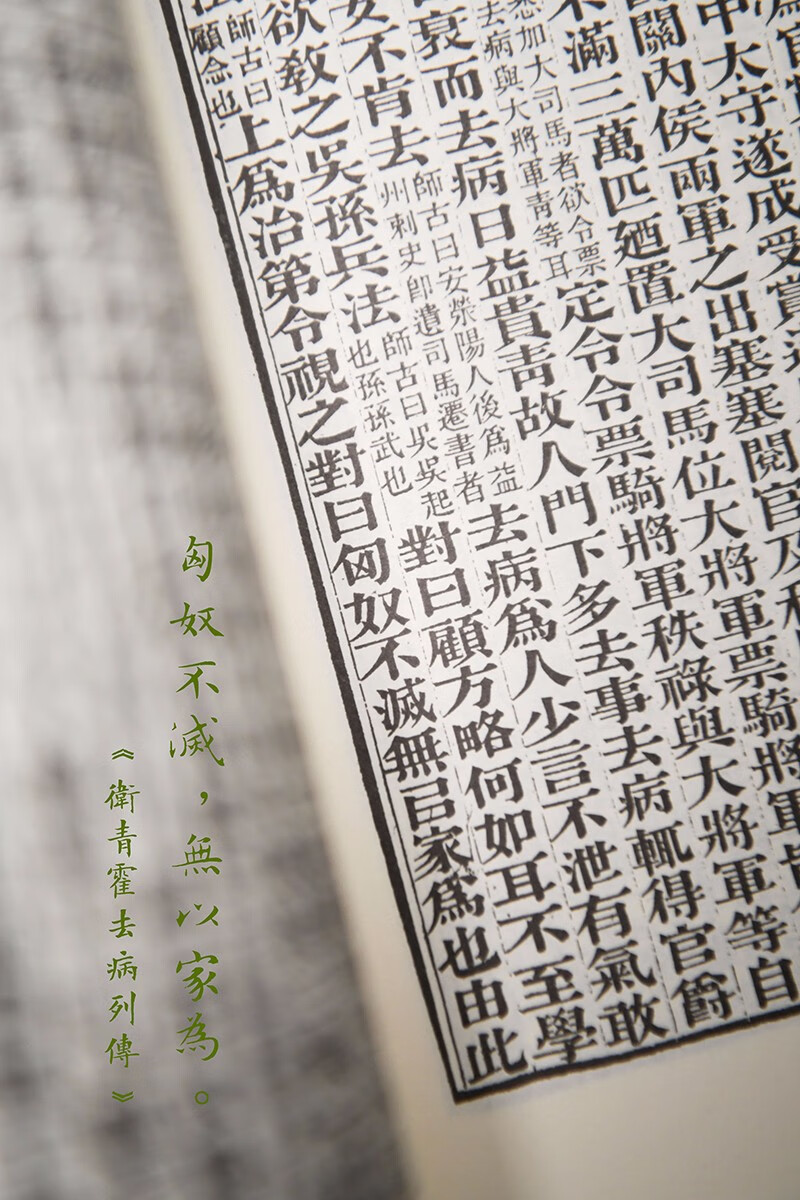 官
中太守遂成受賞
關內侯兩軍之出塞塞閱官及
不滿三萬匹廼置大司馬位大將軍票騎將軍
加大司馬者欲令票
去病與大將軍青等耳
定令令票騎將軍秩祿與大將軍等自
衰而去病日益貴青故人門下多去事去病輒得官爵
安不肯去
師古曰安滎陽人後爲益
州刺史即遺司馬遷書者
去病爲人少言不泄有氣敢
欲教之吳孫兵法
師古曰吳吳起
也孫孫武也
對曰顧方略何如耳不至學
法
師古曰
顧念也
上爲治第令視之對曰匈奴不滅無㠯家爲也由此
匈奴不滅，無以家為。
《衛青霍去病列傳》